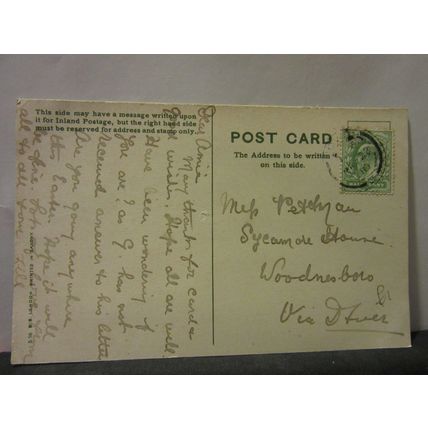 This side may have a message written upon
it for Inland Postage, but the right hand side
must be reserved for address and stamp only.
POST CARD
The Address to be written
on this side.
Dear Annie
Many thanks for card &
Good wishes. Hope all are well
Have been wondering if
you are? as G. has not
received answer to his letter
Are you going anywhere
this East. Hope it will
be fine. Love
all to all from Will
Miss
Sycamore House
Woodnesboro
Via Dover